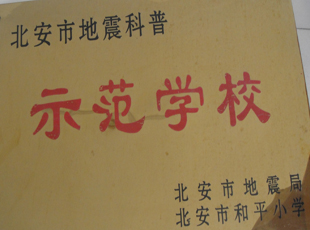 北安市地震科普
示范学校
北安市地震局
北安市和平小学